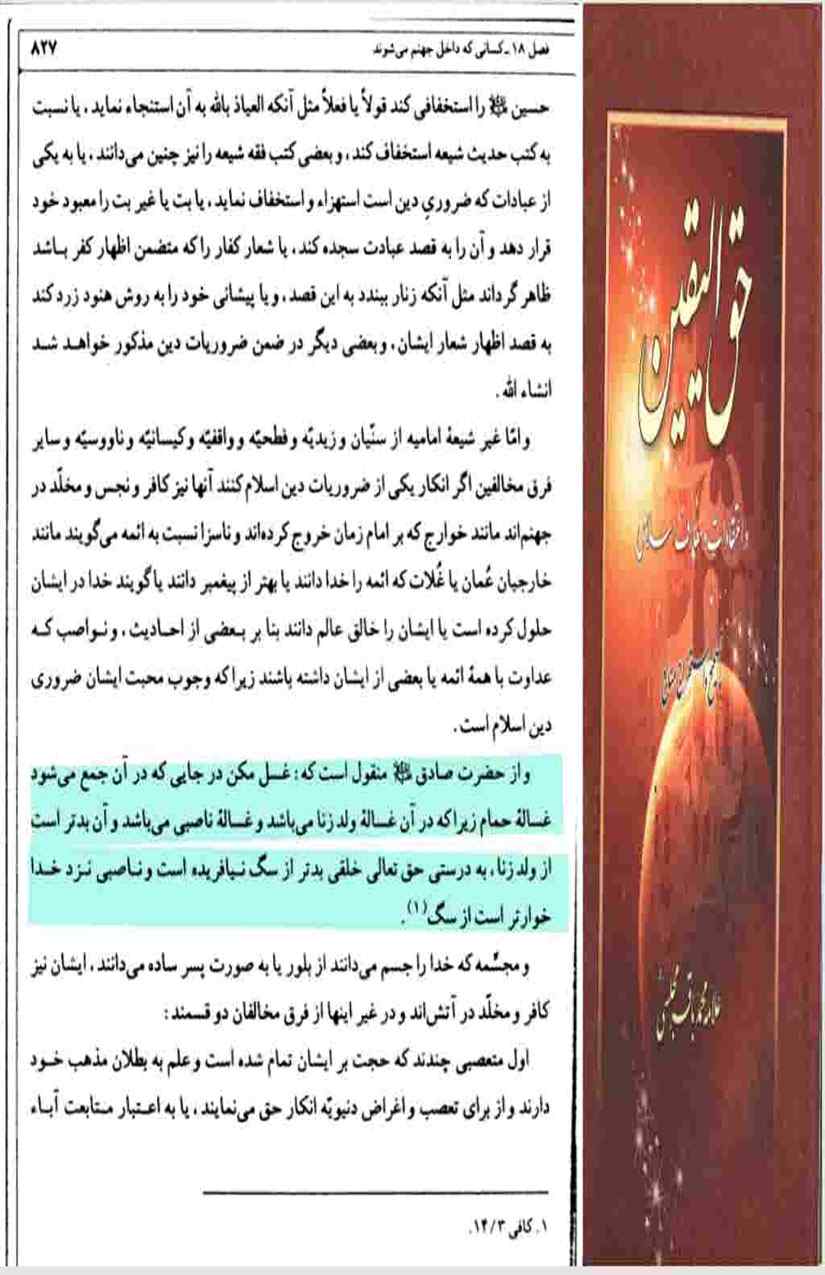 فصل ۱۸ ـ کسانی که داخل جهنم می‌شوند
۸۲۷
حسین ﷺ را استخفافی کند قولاً یا فعلاً مثل آنکه العیاذ بالله به آن استنجاء نماید ، یا نسبت
به کتب حدیث شیعه استخفاف کند ، و بعضی کتب فقه شیعه را نیز چنین می‌دانند ، یا به یکی
از عبادات که ضروریِ دین است استهزاء و استخفاف نماید ، یا بت یا غیر بت را معبود خود
قرار دهد و آن را به قصد عبادت سجده کند ، یا شعار کفار را که متضمن اظهار کفر باشد
ظاهر گرداند مثل آنکه زنار ببندد به این قصد ، و یا پیشانی خود را به روش هنود زرد کند
به قصد اظهار شعار ایشان ، و بعضی دیگر در ضمن ضروریات دین مذکور خواهد شد
انشاء الله .
و امّا غیر شیعهٔ امامیه از سنّیان و زیدیّه و فطحیّه و واقفیّه و کیسانیّه و ناووسیّه و سایر
فرق مخالفین اگر انکار یکی از ضروریات دین اسلام کنند آنها نیز کافر و نجس و مخلّد در
جهنم‌اند مانند خوارج که بر امام زمان خروج کرده‌اند و ناسزا نسبت به ائمه می‌گویند مانند
خارجیان عُمان یا غُلات که ائمه را خدا دانند یا بهتر از پیغمبر دانند یا گویند خدا در ایشان
حلول کرده است یا ایشان را خالق عالم دانند بنا بر بعضی از احادیث ، و نواصب که
عداوت با همهٔ ائمه یا بعضی از ایشان داشته باشند زیرا که وجوب محبت ایشان ضروری
دین اسلام است .
و از حضرت صادق ﷺ منقول است که : غسل مکن در جایی که در آن جمع می‌شود
غسالهٔ حمام زیرا که در آن غسالهٔ ولد زنا می‌باشد و غسالهٔ ناصبی می‌باشد و آن بدتر است
از ولد زنا ، به درستی حق تعالی خلقی بدتر از سگ نیافریده است و ناصبی نزد خدا
خوارتر است از سگ(۱) .
و مجسِّمه که خدا را جسم می‌دانند از بلور یا به صورت پسر ساده می‌دانند ، ایشان نیز
کافر و مخلّد در آتش‌اند و در غیر اینها از فرق مخالفان دو قسمند :
اول متعصبی چندند که حجت بر ایشان تمام شده است و علم به بطلان مذهب خود
دارند و از برای تعصب و اغراض دنیویّه انکار حق می‌نمایند ، یا به اعتبار متابعت آباء
۱. کافی ۱۴/۳.
حق الیقین
علامه محمد باقر مجلسی